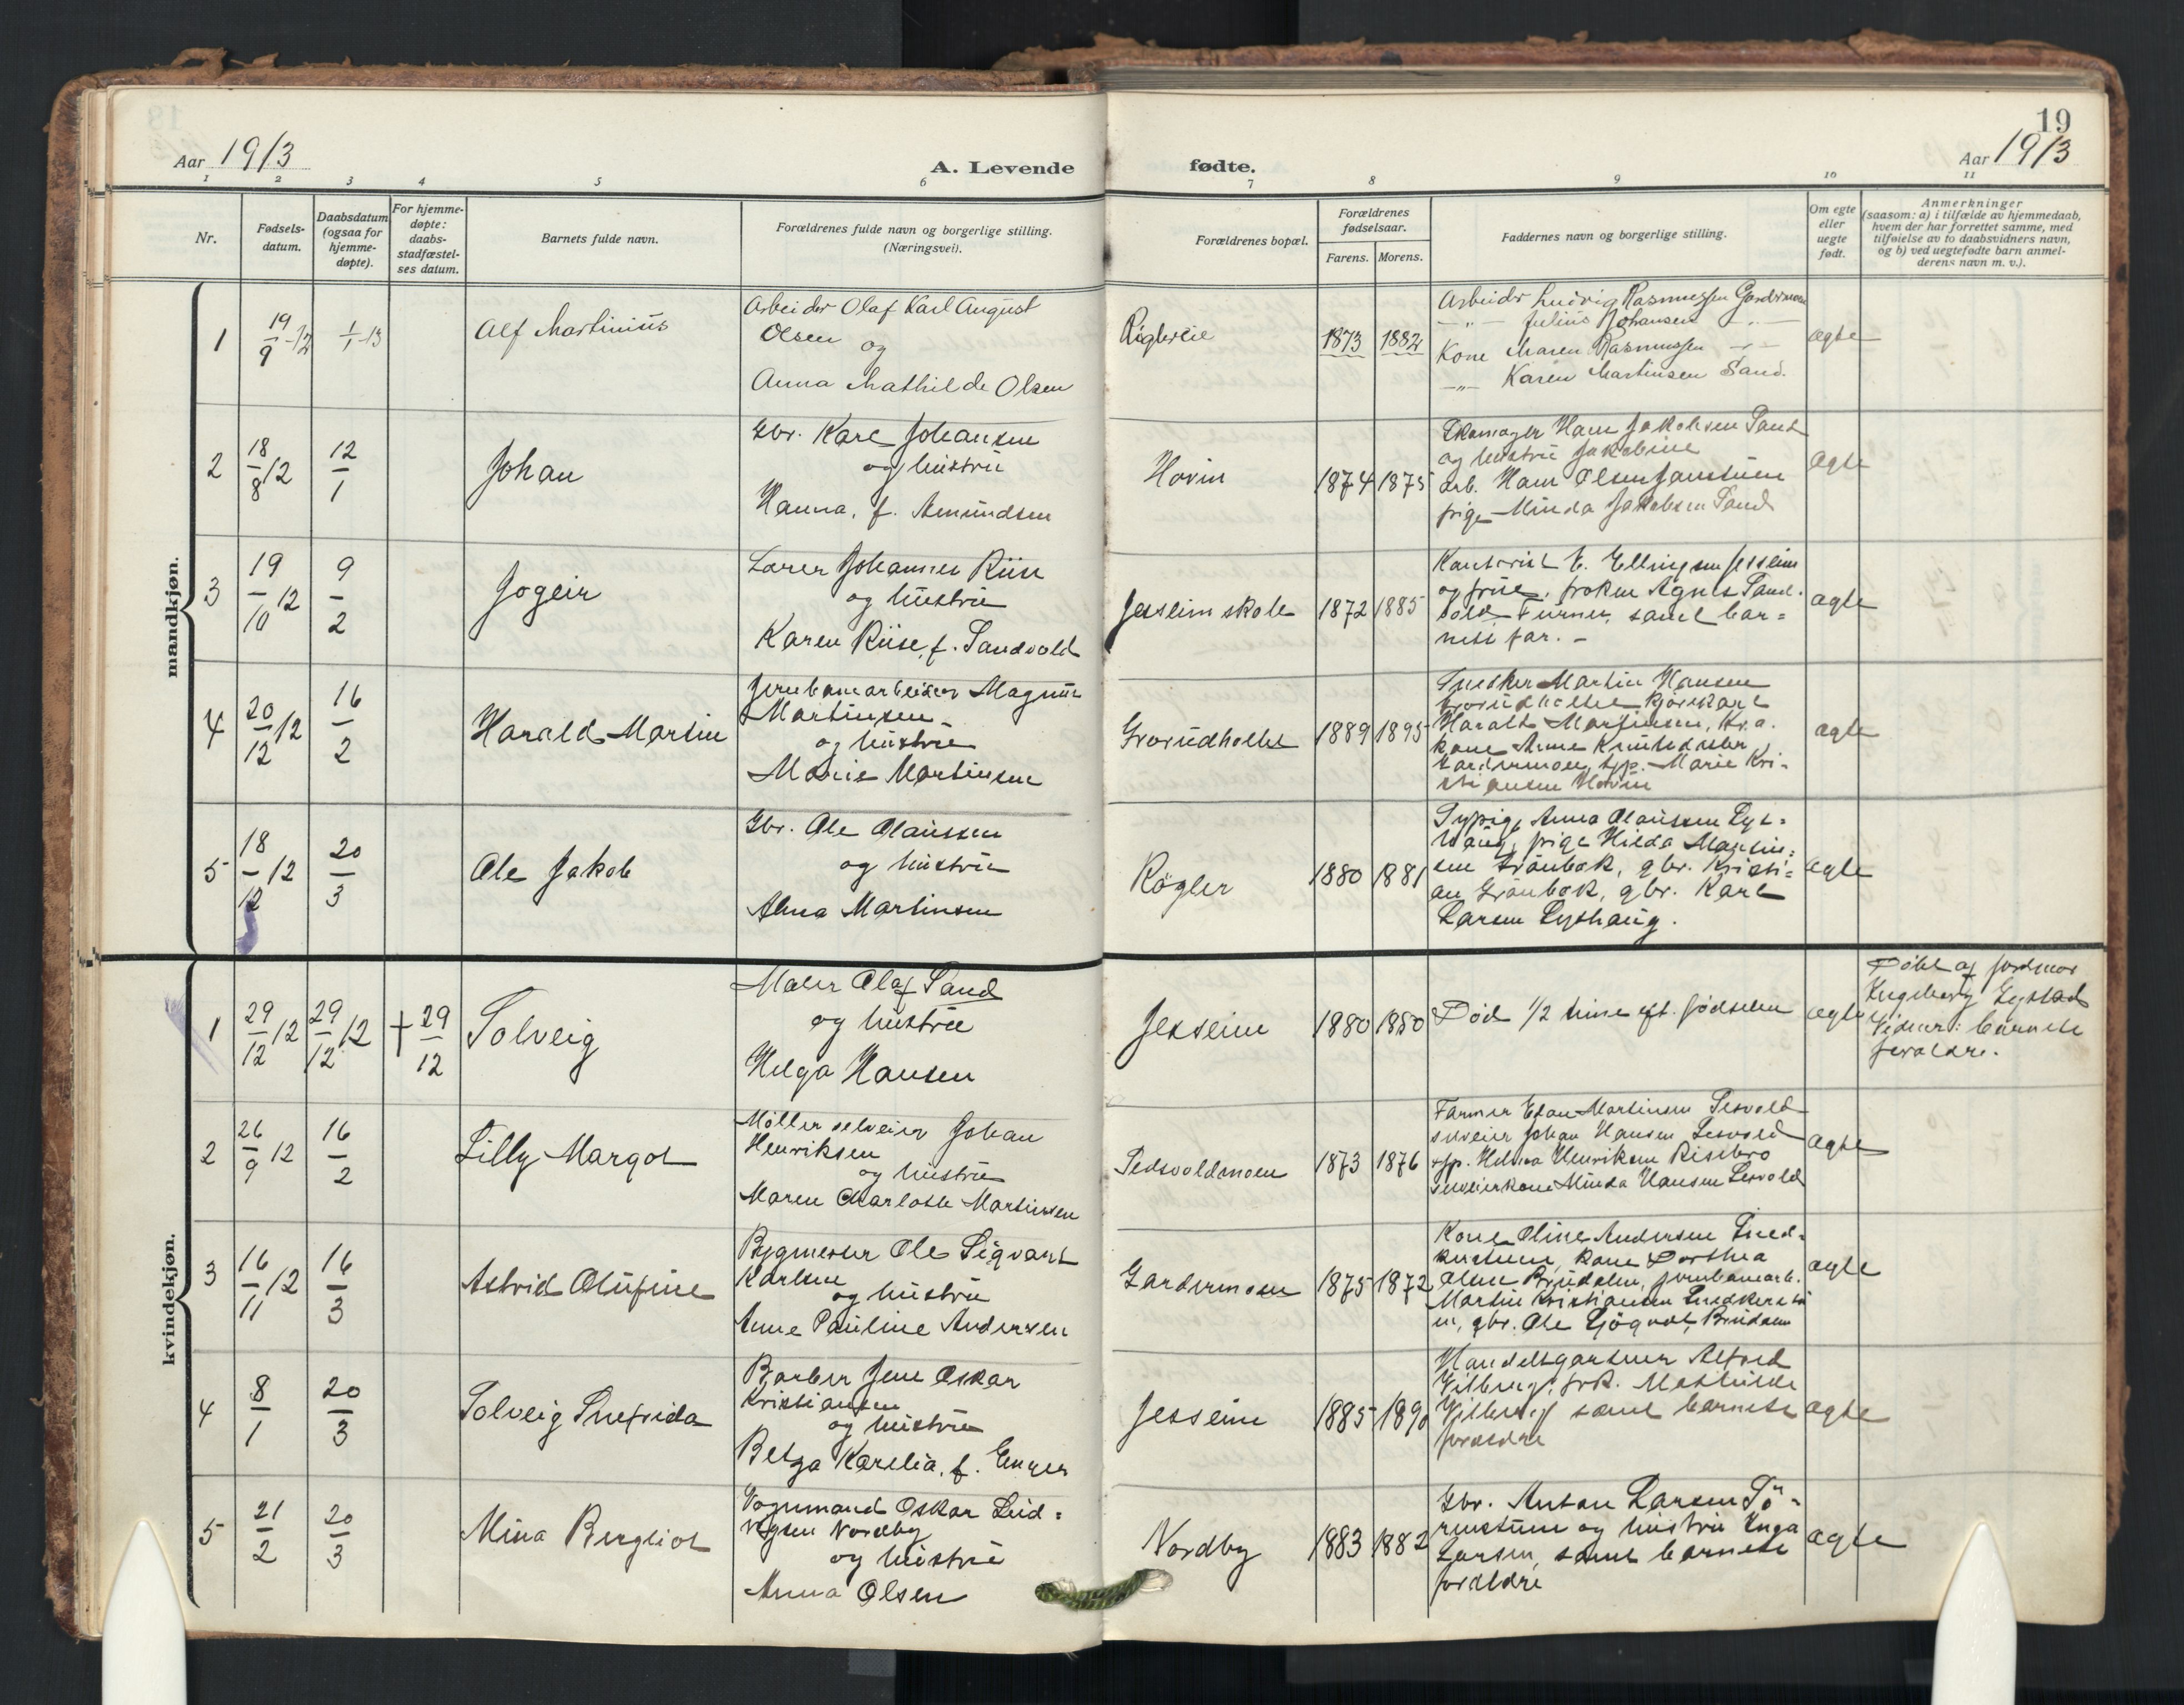 19
Aar 1913
A. Levende fødte.
Aar 1913
1 2 3 4 5 6 7 8 9 10 11
Nr.
Fødsels-
datum.
Daabsdatum
(ogsaa for
hjemme-
døpte).
For hjemme-
døpte:
daabs-
stadfæstel-
ses datum.
Barnets fulde navn.
Forældrenes fulde navn og borgerlige stilling.
(Næringsvei).
Forældrenes bopæl.
Forældrenes
fødselsaar.
Farens. Morens.
Faddernes navn og borgerlige stilling.
Om egte
eller
uegte
født.
Anmerkninger
(saasom: a) i tilfælde av hjemmedaab,
hvem der har forrettet samme, med
tilføielse av to daabsvidners navn,
og b) ved uegtefødte barn anmel-
derens navn m. v.).
mandkjøn.
1
19/9-12
1/1-13
Alf Martinius
Arbeider Olaf Karl August
Olsen og
Anna Mathilde Olsen
Røglereie
1873
1882
Arbeider Ludvig Rasmussen Gardermoen
—„— Julius Johansen —„—
Kone Maren Rasmussen —„—
—„— Karen Martinsen Sand.
ægte
2
18/8 12
12/1
Johan
Gbr. Karl Johansen
og hustru
Hanna, f. Amundsen
Hovin
1874
1875
Skomager Hans Jakobsen Sand
og hustru Jakobine
Arb. Hans Olsen
pige Minda Jakobsen Sand
ægte
3
19/10 12
9/2
Jogeir
Lærer Johannes Riise
og hustru
Karen Riise, f. Sandvold
Jessheim skole
1872
1885
Kontorist E. Ellingsen Jessheim
og frue, frøken Agnes Sand-
vold Furner, samt bar-
nets far. –
ægte
4
20/12 12
16/2
Harald Martin
Jernbanearbeider Magnus
Martinsen
og hustru
Marie Martinsen
Grorudholtet
1889
1895
Snekker Martin Hansen
Grorudholtet kjørekarl
Harald Martinsen, Kr.a.
kone Anne
Gardermoen, syp. Marie Kri-
stiansen Hovin
ægte
5
18/12 12
20/3
Ole Jakob
Gbr. Ole Olaussen
og hustru
Alma Martinsen
Røgler
1880
1881
Sypige Anna Olaussen Lys-
haug, pige Hilda Mausin-
en Grønbæk, gbr. Kristi-
an Grønbæk, gbr. Karl
Larsen Lyshaug.
ægte
kvindekjøn.
1
29/12 12
29/12 12
† 29/12
Solveig
Maler Olaf Sand
og hustru
Helga Hansen
Jessheim
1880
1880
Død 1/2 time eft. fødselen
ægte
Døbt af jordmor
Ingeborg Lystad
Vidner: barnets
forældre.
2
26/9 12
16/2
Lilly Margot
Møller selveier Johan
Henriksen
og hustru
Maren Charlotte Martinsen
1873
1876
Farmer Edan Martinsen Lesvold
selveier Johan Hansen Lesvold
syp. Helma Henriksen Risebro
selveierkone Minda Hansen Lesvold
ægte
3
16/11 12
16/3
Astrid Olufine
Bygmester Ole Sigvart
Karlsen
og hustru
Anne Pauline Andersen
Gardermoen
1875
1872
Kone Oline Andersen Sned-
kerstuen, kone Dorthea
Olsen Brudalen, jernbanearb.
Martin Kristiansen Snedkerstu
en, gbr. Ole Sjøqvol, Brudalen
ægte
4
8/1
20/3
Solveig Snefrida
Barber Jens Oskar
Kristiansen
og hustru
Betga Karelia, f. Enger
Jessheim
1885
1890
Handelsgartner Alfred
Gilberg, frk. Mathilde
Gilberg samt barnets
forældre
ægte
5
21/2
20/3
Mina Bergliot
Vognmand Oskar Lud-
vigsen Nordby
og hustru
Anna Olsen
Nordby
1883
1882
Gbr. Anton Larsen Tø-
rnestuen og hustru Inga
Larsen, samt barnets
forældre
ægte